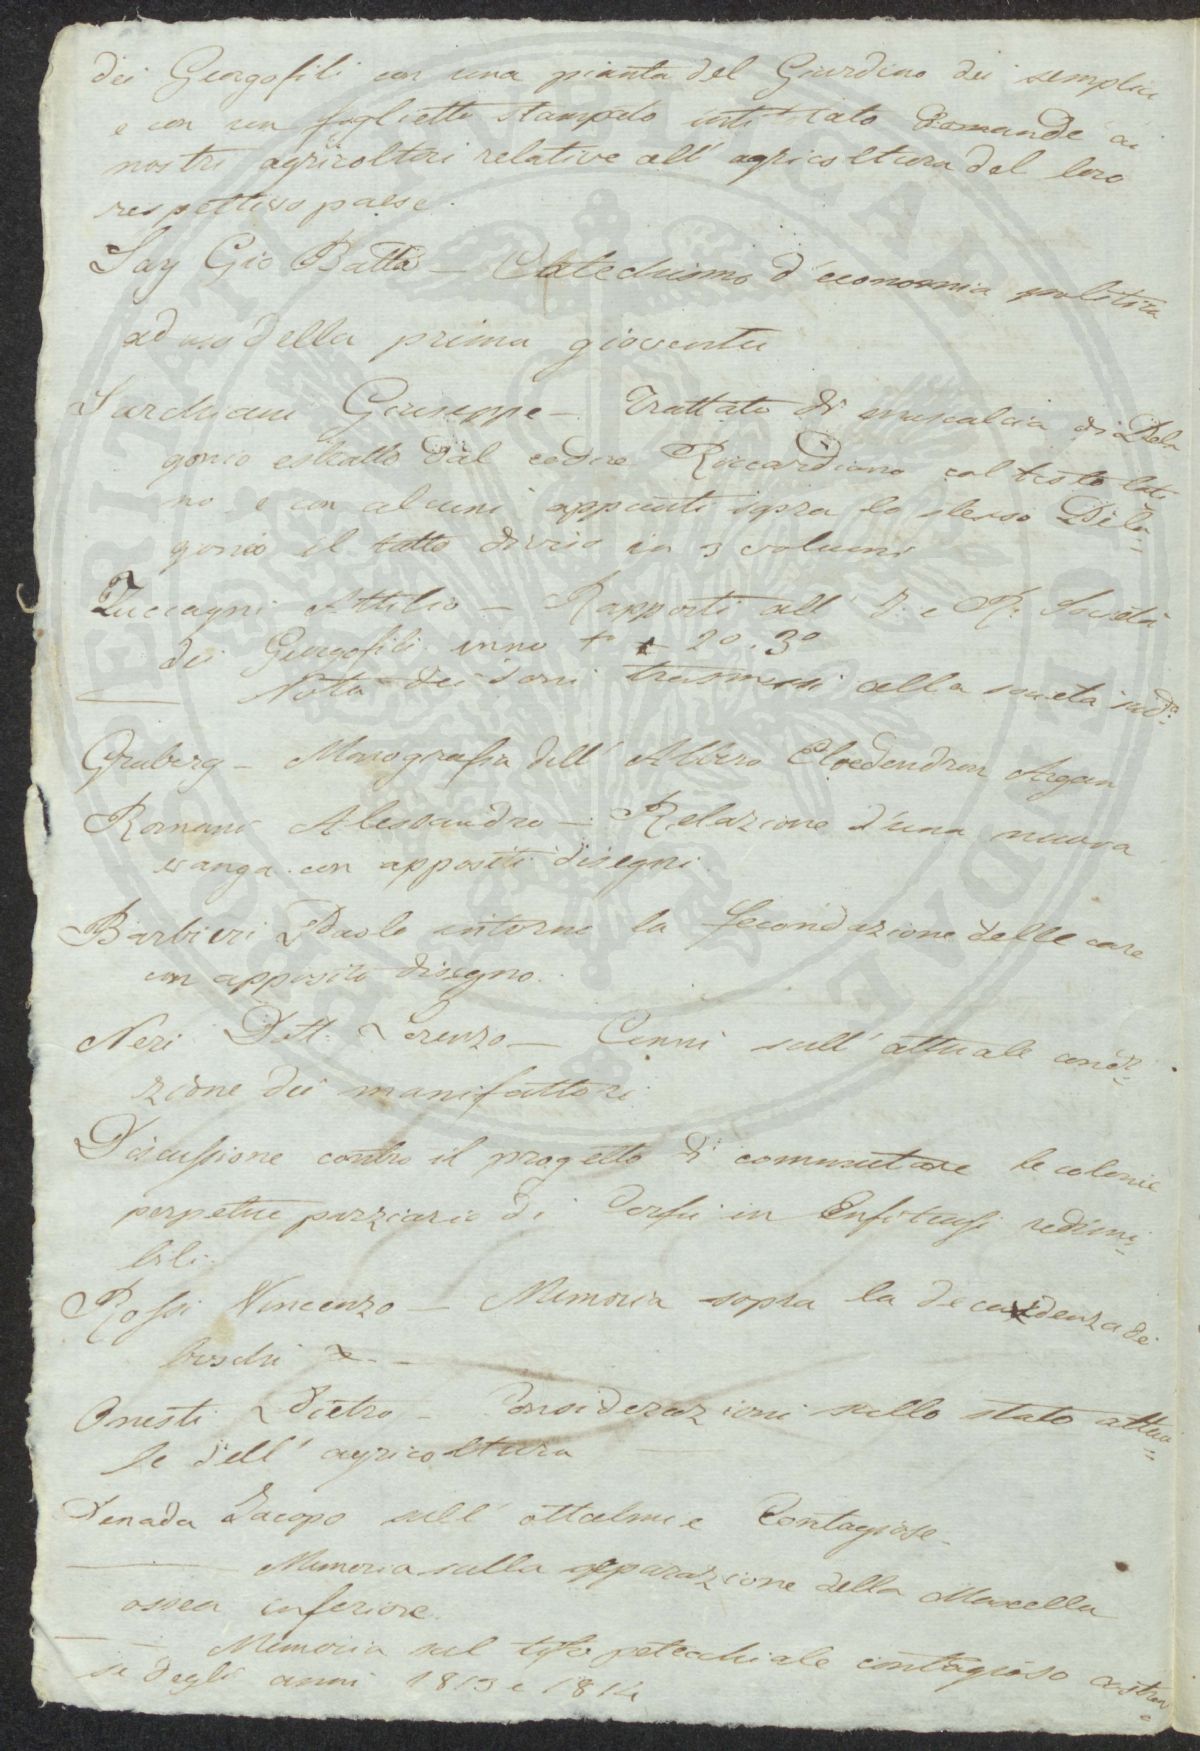 dei Georgofili con una pianta del Giardino dei semplici
e con un foglietto stampato intitolato Domande ai
nostri agricoltori relative all' agricoltura del loro
respettivo paese.
Say Gio Batta — Catechismo d'economia politica
ad uso della prima gioventu
Sarchiani Giuseppe — Trattato di mascalcia di Dela
gonio estratto dal codice Riccardiano col testo lati
no e con alcuni appunti sopra lo stesso Dela=
gonio il tutto diviso in 3 volumi
Zuccagni Attilio — Rapporti all' I. e R. Società
dei Georgofili anno 2º. 3º
— Nota dei doni trasmessi alla società sudª.
Graberg — Monografia dell' Albero Eloedendron Argan
Romani Alessandro — Relazione d'una nuova
vanga con appositi disegni.
Barbieri Paolo intorno la fecondazione delle care
con apposito disegno.
Neri Dott. Lorenzo — Cenni sull' attuale condi=
zione dei manifattori
Discussione contro il progetto di commutare le colonie
perpetue parziarie di Corfu in Enfiteusi redimi=
bili.
Rossi Vincenzo — Memoria sopra la decadenza de
boschi
Onesti Pietro — Considerazioni sullo stato attua=
le dell' agricoltura
Penada Jacopo sull' ottalmie Contagiose.
— Memoria sulla separazione della Mascella
ossea inferiore.
— Memoria sul tifo petecchiale contagioso castren=
se degli anni 1813 e 1814
PVBLICAE FELICITATI
PROSPERITATI